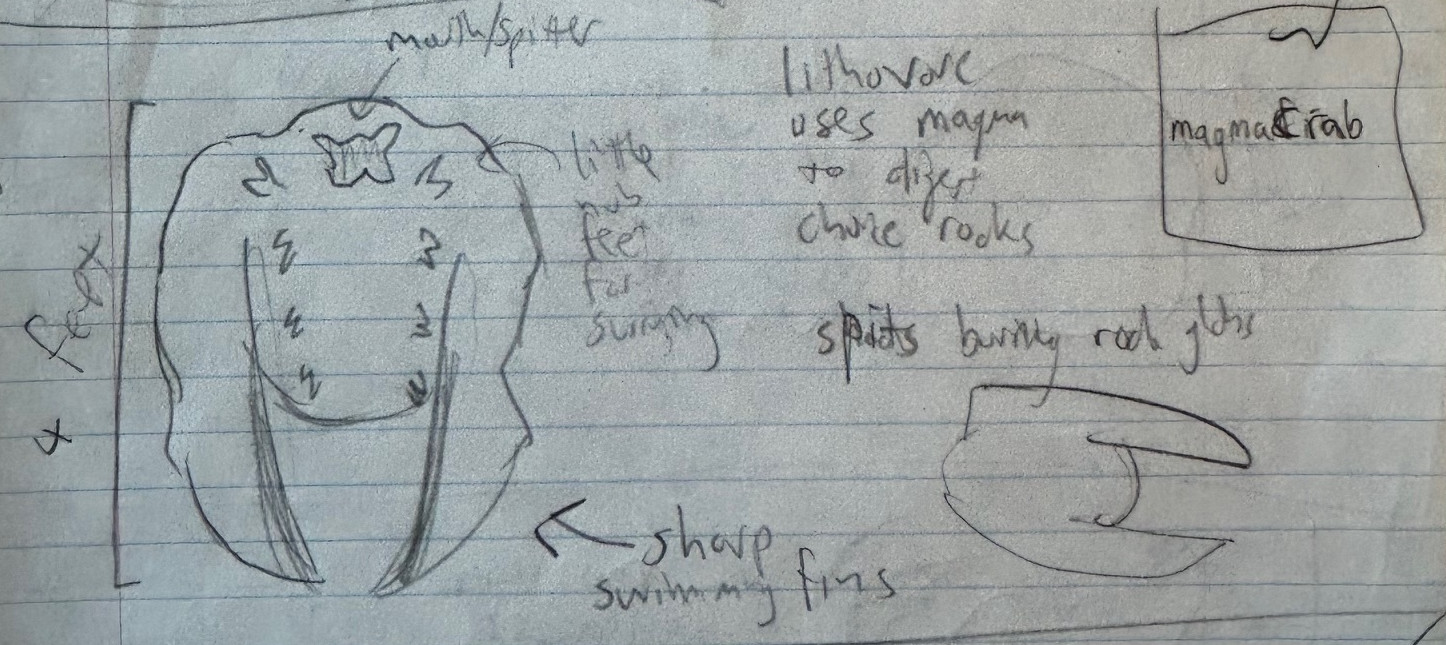 mouth/spitter
lithovore
uses magma
to digest
choice rocks
magma Crab
little
nub
feet
for
4 feet
spits burning rock globs
sharp
swimming fins